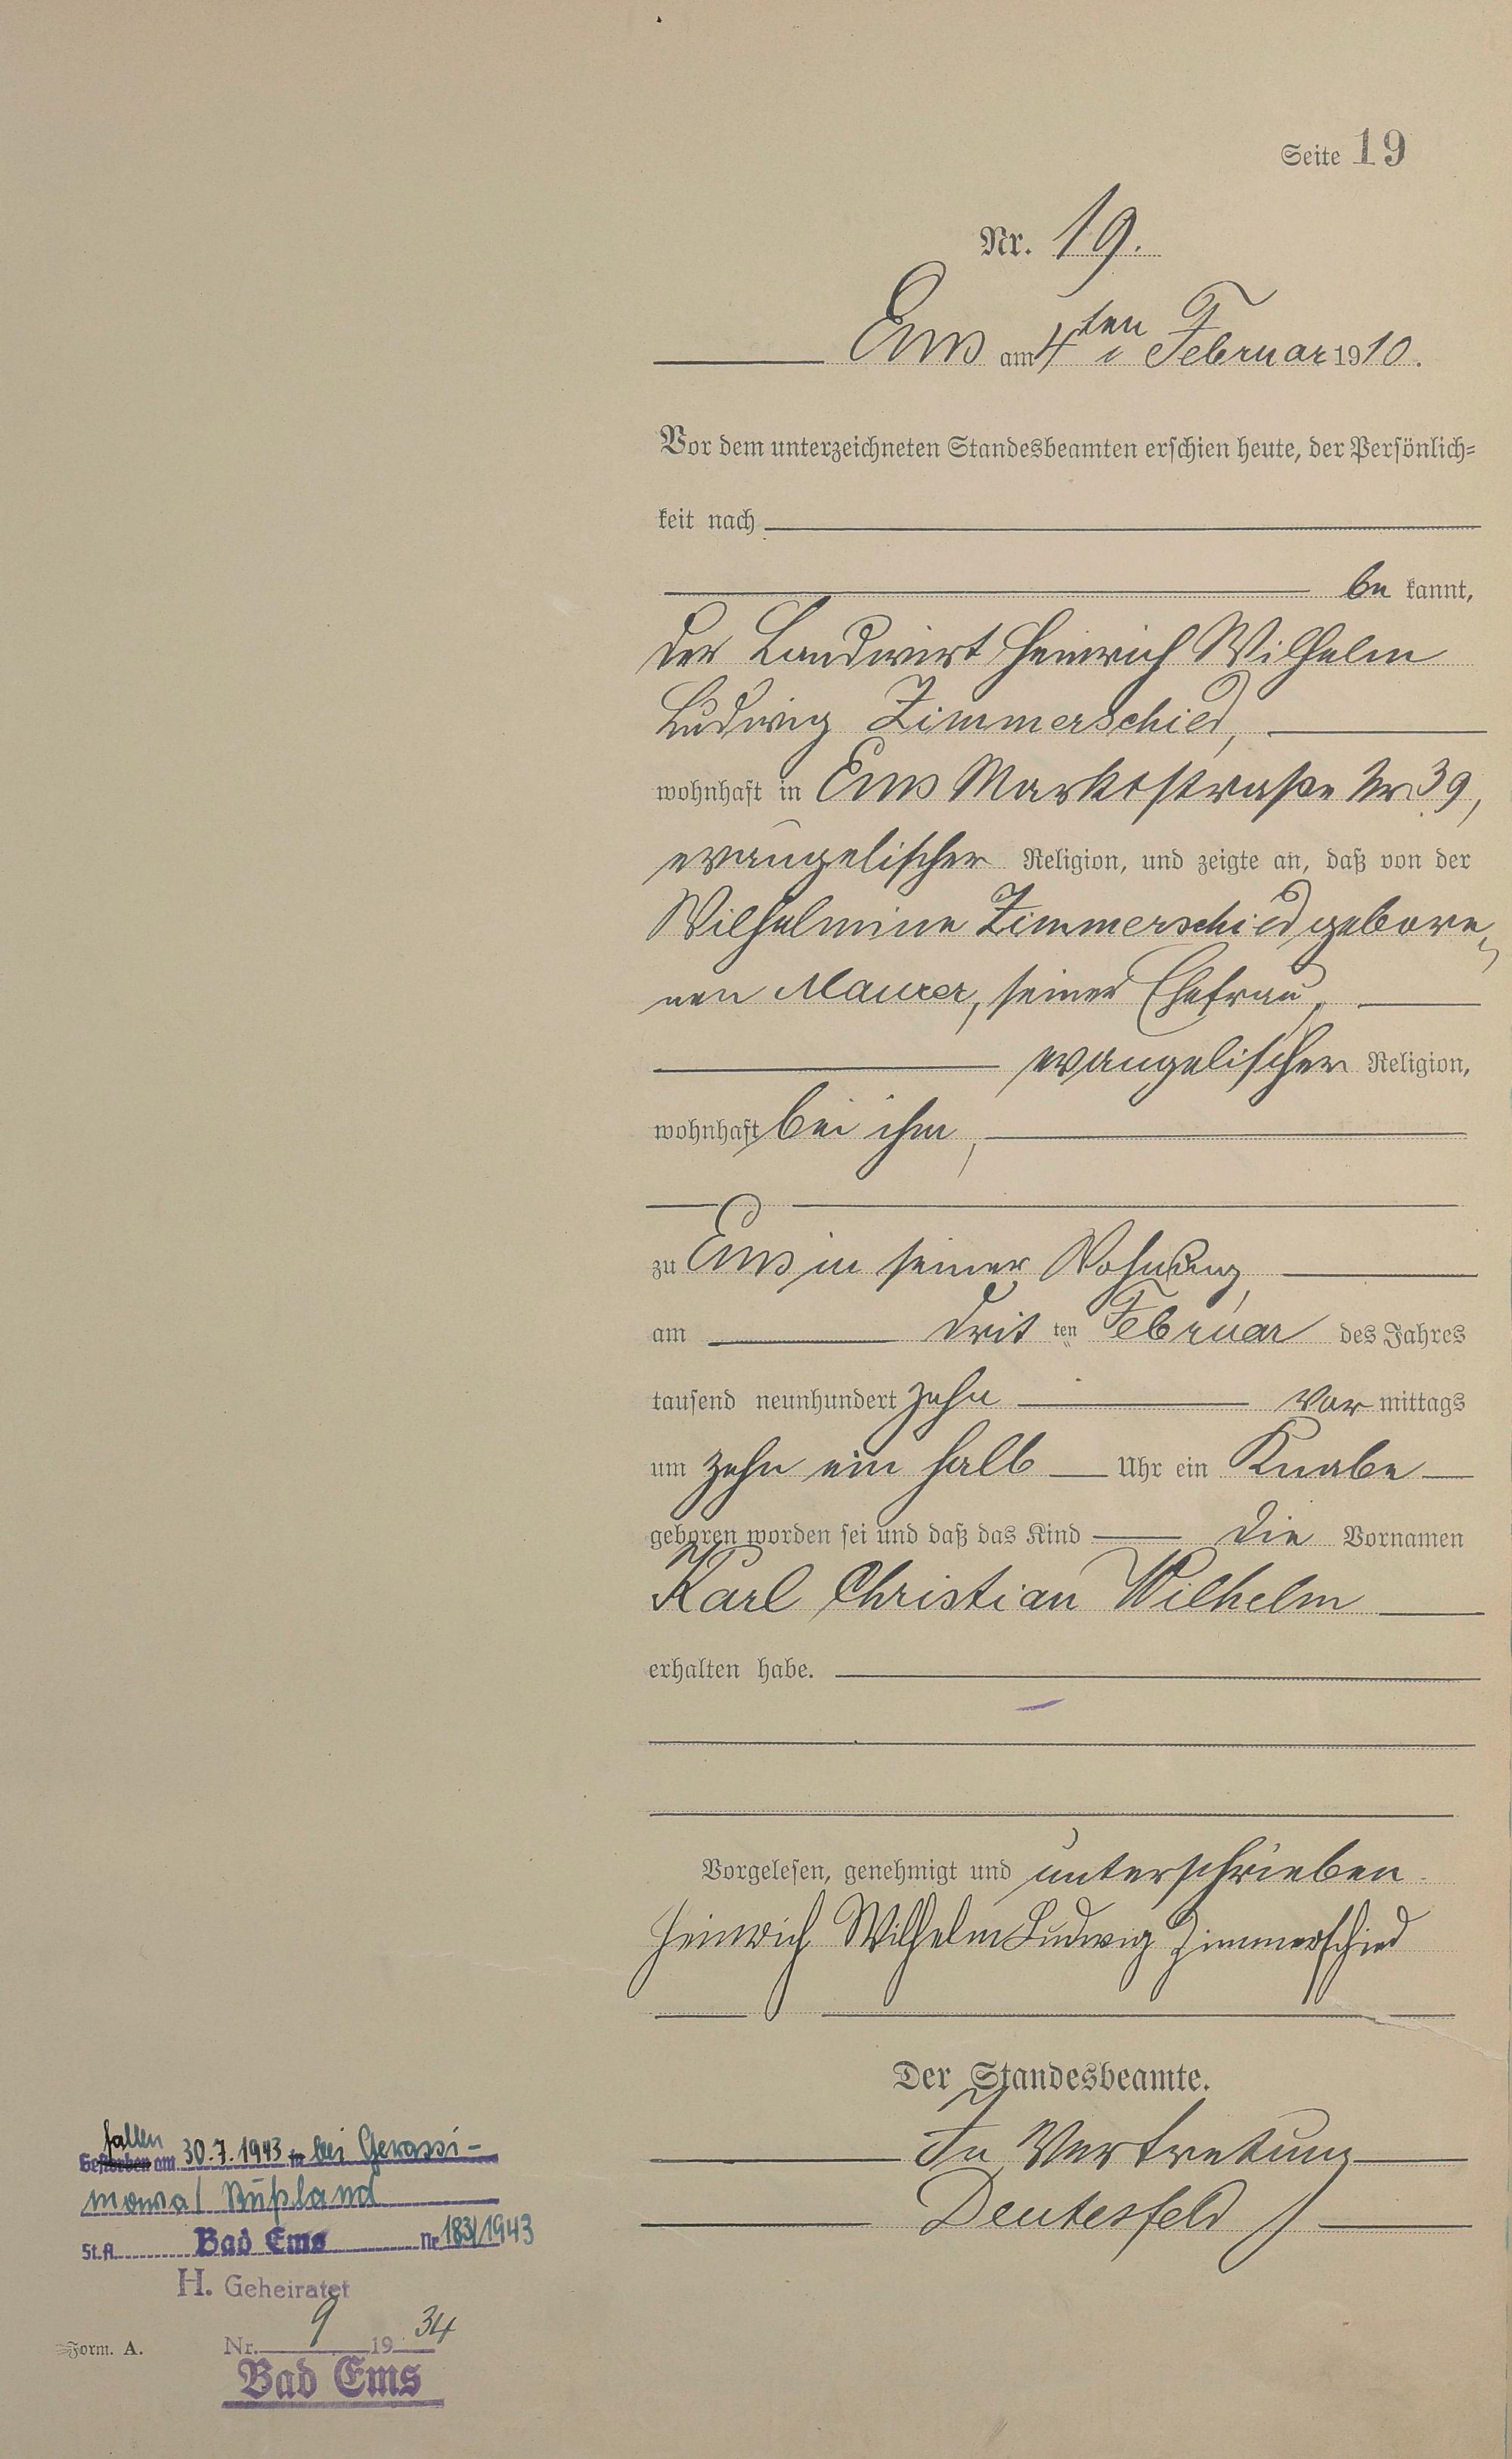 Seite 19
Nr. 19.
Ems am 4ten Februar 1910.
Vor dem unterzeichneten Standesbeamten erschien heute, der Persönlich-
keit nach
be kannt,
der Landwirt Heinrich Wilhelm
Ludwig Zimmerschied,
wohnhaft in Ems Marktstraße Nr. 39,
evangelischer Religion, und zeigte an, daß von der
Wilhelmine Zimmerschied gebore-
nen Maurer, seiner Ehefrau,
evangelischer Religion,
wohnhaft bei ihm,
zu Ems in seiner Wohnung,
am drit ten Februar des Jahres
tausend neunhundert zehn vor mittags
um zehn ein halb Uhr ein Knabe
geboren worden sei und daß das Kind die Vornamen
Karl Christian Wilhelm
erhalten habe.
Vorgelesen, genehmigt und unterschrieben.
Heinrich Wilhelm Ludwig Zimmerschied
Der Standesbeamte.
In Vertretung
Deutesfeld
fallen
Gestorben am 30.7.1943 in bei Gerassi-
mowa/ Rußland
St.A. Bad Ems Nr 183/1943
H. Geheiratet
Nr. 9 1934
Bad Ems
Form. A.